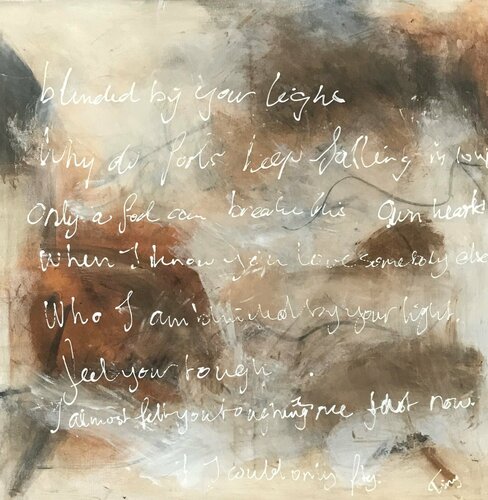 blinded by your light
Why do fools keep falling in love
Only a fool can break his own heart
When I know you love somebody else
Who I am blinded by your light.
feel your tough .
I almost felt you toughing me just now
if I could only fly.